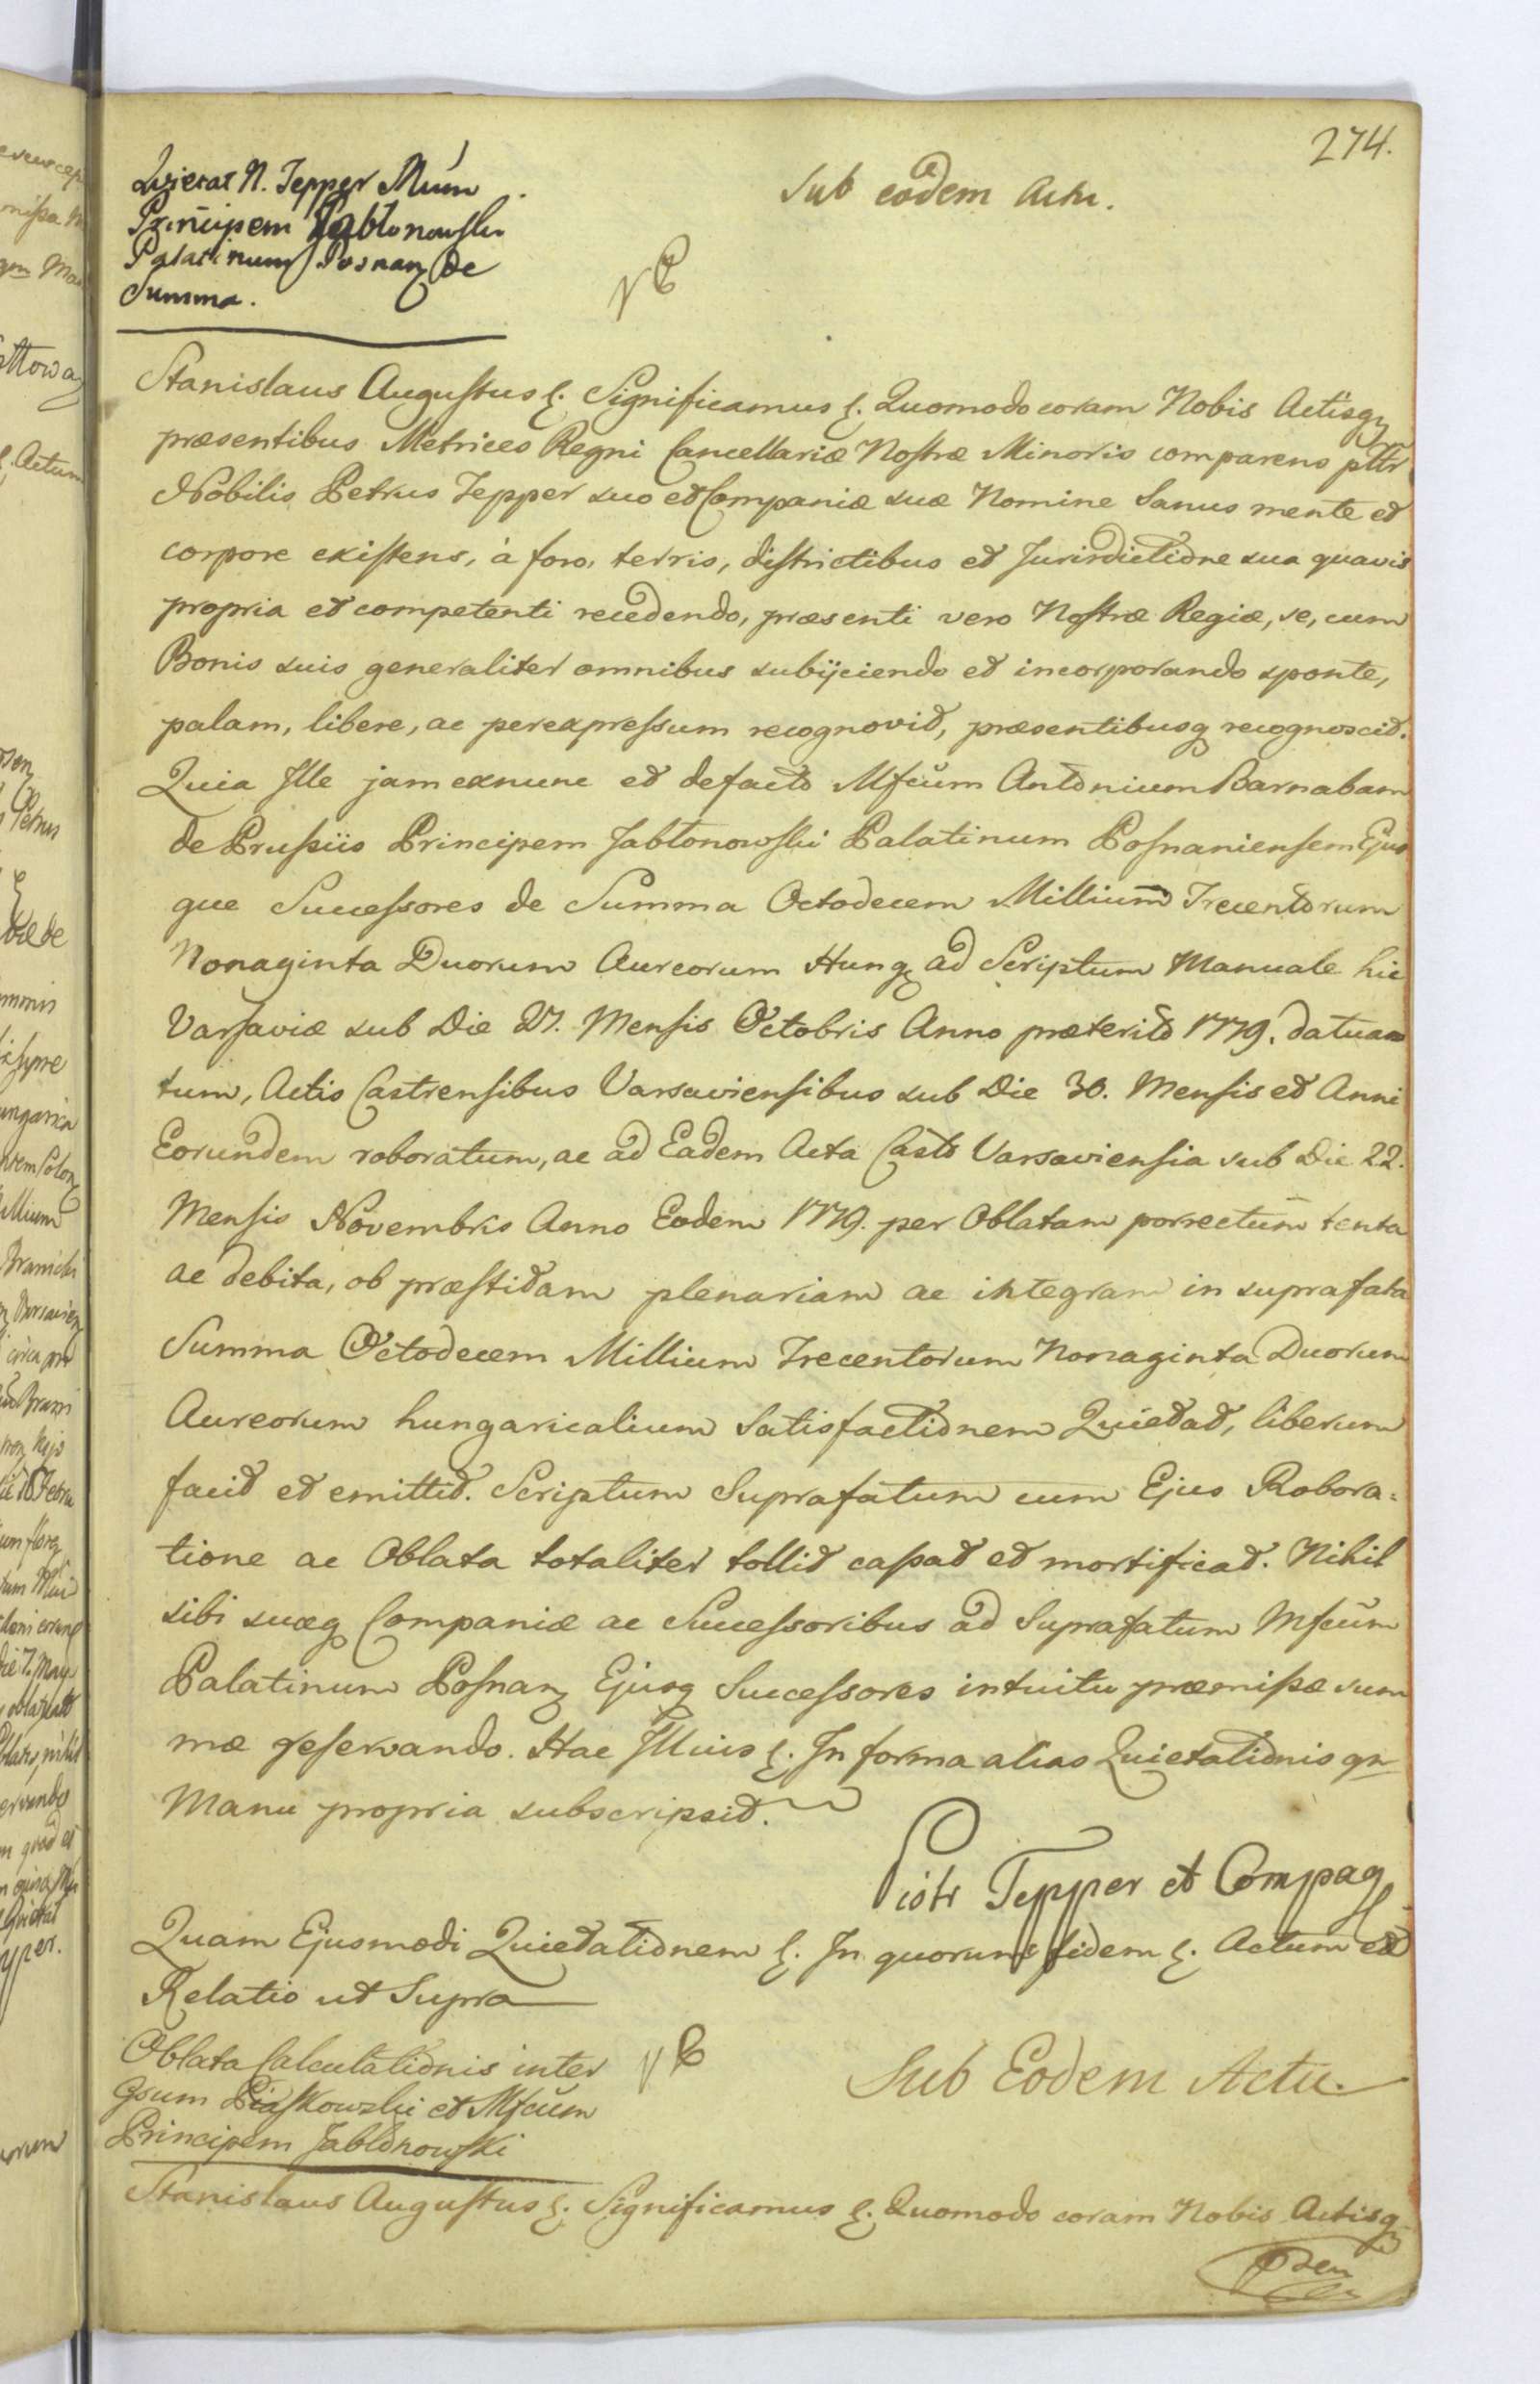 274.
Quietat N. Tepper Mum
Principem Jabłonowski
Palatinum Posnan de
Summa.
Sub eodem Actu.
Stanislaus Augustus &. Significamus &. Quomodo coram Nobis Actisq
præsentibus Metrices Regni Cancellariæ Nostræ Minoris comparens pttr
Nobilis Petrus Tepper suo et Companiæ suæ Nomine Sanus mente et
corpore existens, à foro, terris, districtibus et Jurisdictione sua quavis
propria et competenti recedendo, præsenti vero Nostræ Regiæ, se, cum
Bonis suis generaliter omnibus subijciendo et incorporando sponte,
palam, libere, ac perexpressum recognovit, præsentibusq recognoscit.
Quia Ille jam exnunc et defacto Mfcum Antonium Barnabam
de Prussiis Principem Jabłonowski Palatinum Posnaniensem Ejus
que Successores de Summa Octodecem Millium Trecentorum
Nonaginta Duorum Aureorum Hung ad Scriptum Manuale hic
Varsaviæ sub Die 27. Mensis Octobris Anno præterito 1779. datum
tum, Actis Castrensibus Varsaviensibus sub Die 30. Mensis et Anni
Eorundem roboratum, ac ad Eadem Acta Casto Varsaviensia sub Die 22.
Mensis Novembris Anno Eodem 1779. per Oblatam porrectum tenta
ac debita, ob præstitam plenariam ac integram in suprafata
Summa Octodecem Millium Trecentorum Nonaginta Duorum
Aureorum hungaricalium Satisfactionem Quietat, liberum
facit et emittit. Scriptum Suprafatum cum Ejus Robora=
tione ac Oblata totaliter tollit cassat et mortificat. Nihil
sibi suæq Companiæ ac Successoribus ad Suprafatum Mfcum
Palatinum Posnan Ejusq Successores intuitu præmissæ sum
mæ reservando. Hac Illius &. In forma alias Quietationis qn
Manu propria subscripsit.
Piotr Tepper et Compag
Quam Ejusmodi Quietationem &. In quorum fidem &. Actum et
Relatio ut Supra
Oblata Calculationis inter
Gsum Piaskowski et Mfcum
Principem Jabłonowski
Sub Eodem Actu.
Stanislaus Augustus &. Significamus &. Quomodo coram Nobis Actisq